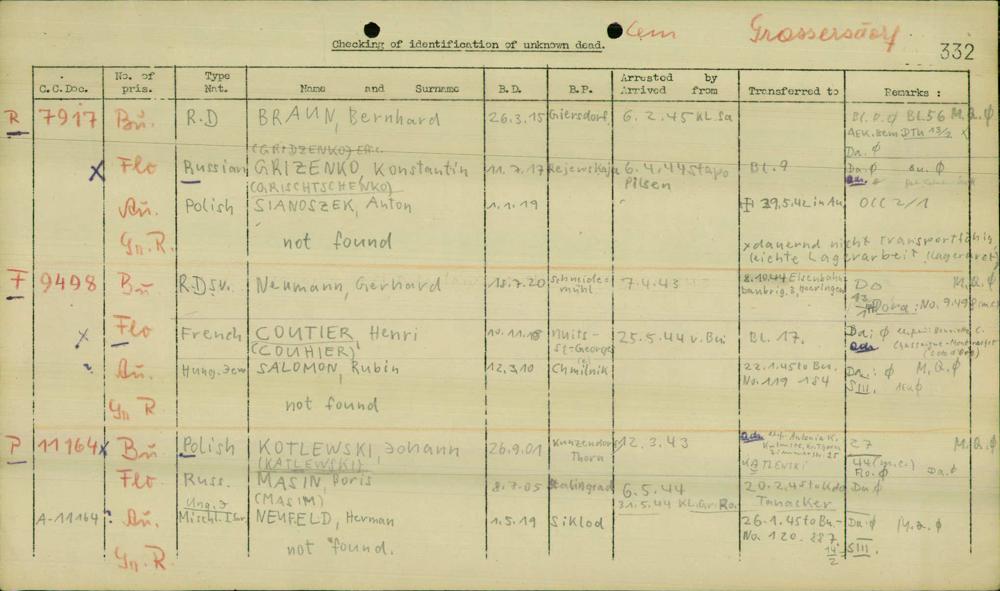 Cem Grossersdorf
Checking of identification of unknown dead.
332
C.C.Doc. No. of pris. Type Nat. Name and Surname B.D. B.P. Arrested by Arrived from Transferred to Remarks :
R 7917 Bu. R.D BRAUN, Bernhard 26.3.15 Giersdorf 6.2.45 KL.Sa Bu.D.Ø BL56 M.Q.Ø
Da. Ø
(GRIDZENKO)
x Flo Russian GRIZENKO, Konstantin 11.7.17 Rejewskaja 6.4.44 Stapo Pilsen BL.9 Da.Ø Au.Ø
(GRISCHTSCHENKO)
Au. Polish SIANOSZEK, Anton 1.1.19 39.5.42 in Au. OCC 2/1
Gn.R. not found
x dauernd nicht transportfähig
leichte Lagerarbeit (Lagerarzt)
F 9498 Bu R.D.S.V. Neumann, Gerhard 18.7.20 Schneidemühl. 7.4.43 8.10.44 Eisenbahnbaubrig.3, Do M.Q.Ø
Dora: No. 9498
x Flo French COUTIER, Henri 10.11.18 Nuits-St-Georges 25.5.44 v. Bu BL 17. Da: Ø
(COUHIER)
? Au. Hung.Jew SALOMON, Rubin 12.3.10 Chmilnik 22.1.45 to Bu. No. 119 184 Da.: Ø M.Q.Ø
SIII.
Gn R not found
P 11164 x Bu. Polish KOTLEWSKI, Johann 26.9.01 Kunzendorf Thorn 12.3.43 Antonia K. 27 M.Q.Ø
(KATLEWSKI) KATLEWSKI 44 (m.c.) Flo.Ø Da.Ø
Flo. Russ. MASIN, Boris 8.7.05 Stalingrad 6.5.44 20.2.45 to Kdo Tanacker Da.Ø
(MASIM) 31.5.44 KL.Gr.Ro.
A-11164 ? Au. Ung.J Mischl.Isr. NEUFELD, Herman 1.5.19 Siklod 26.1.45 to Bu.- No. 120.287 Da.Ø M.Q.Ø
SIII.
Gn.R. not found.